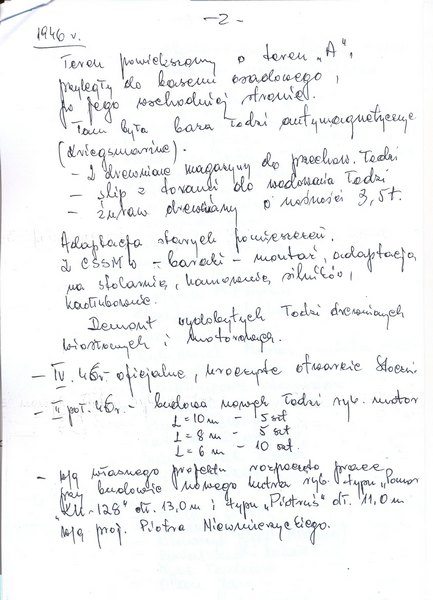 — 2 —
1946 r.
Teren powiększony o teren „A",
przyległy do basenu osadowego,
po jego wschodniej stronie.
Tam była baza łodzi antymagnetyczne
(Kriegsmarine).
– 2 drewniane magazyny do przechow. łodzi
– slip z torami do wodowania łodzi
– żuraw drewniany o nośności 3,5t.
Adaptacja starych pomieszczeń.
Z CSSM w – baraki – montaż, adaptacja
na stolarnię, hamownię silników,
kadłubownię.
Remont wydobytych łodzi drewnianych
wiosłowych i motorowych.
– IV. 46r – oficjalne, uroczyste otwarcie Stoczni
– II poł. 46r. – budowa nowych łodzi ryb. motor
L = 10 m – 5 szt
L = 8 m – 5 szt
L = 6 m – 10 szt.
– w/g własnego projektu rozpoczęto prace
przy budowie nowego kutra ryb. typu
"KU-128" dł. 13,0 m i typu „Piotruś" dł. 11,0 m
w/g proj. Piotra